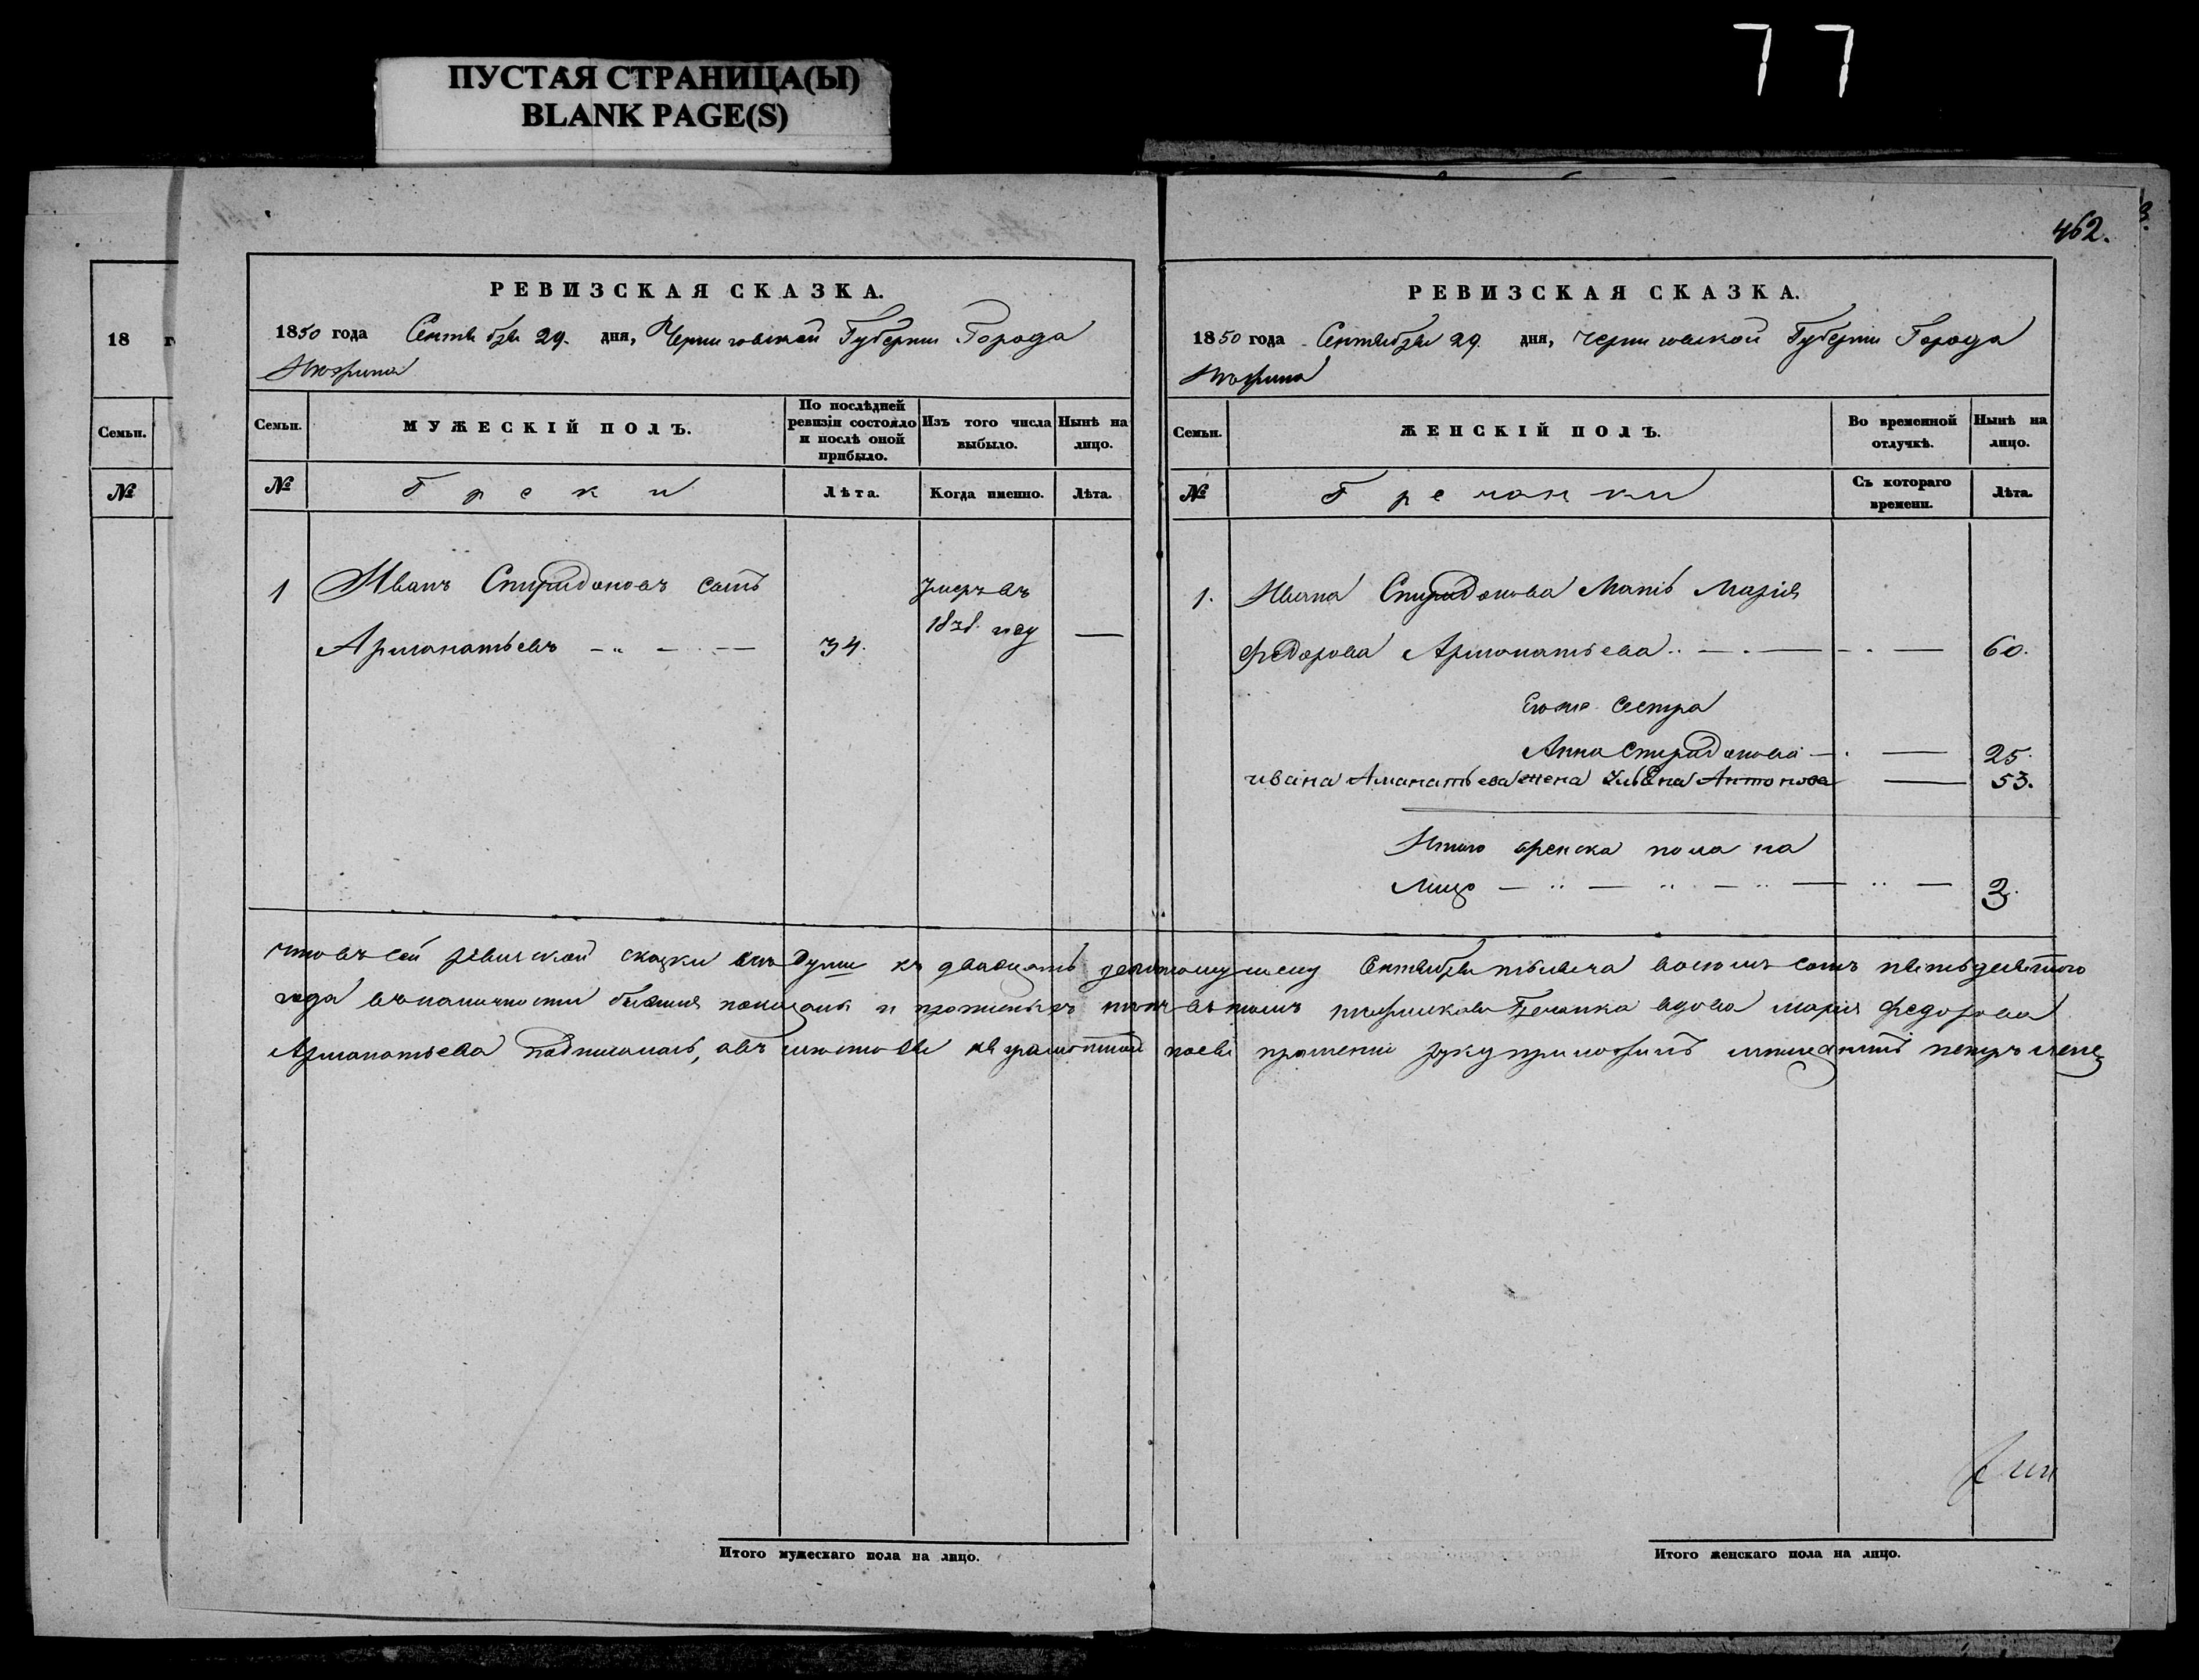 77
ПУСТАЯ СТРАНИЦА(Ы)
BLANK PAGE(S)
462.
18
Семьи.
№
РЕВИЗСКАЯ СКАЗКА.
1850 года Сентября 29. дня, Черниговской Губернии Города
Нѣжина
Семьи.
МУЖЕСКІЙ ПОЛЪ.
По послѣдней ревизіи состояло и послѣ оной прибыло.
Изъ того числа выбыло.
Нынѣ на лицо.
№
Греки
Лѣта.
Когда именно.
Лѣта.
1 Иванъ Спиридоновъ сынъ Умеръ въ
Армонатьевъ 34. году
РЕВИЗСКАЯ СКАЗКА.
1850 года Сентября 29 дня, Черниговской Губерніи Города
Нѣжина
Семьи.
ЖЕНСКІЙ ПОЛЪ.
Во временной отлучкѣ.
Нынѣ на лицо.
№
Гречанки
Съ котораго времени.
Лѣта.
1. Ивана Спиридонова Мать Марія
Федорова Армонатьева 60.
Его же Сестра
Анна Спиридонова 25.
ивана Аманатьева жена Ульяна Антонова 53.
Итого женска пола на
Лицо 3.
что въ сей ревизской сказки всѣ души къ двадцать девятому числу Сентября тысяча восемь сотъ пятьдесятого
года въ наличности бывшия показаны и прописныхъ нѣтъ въ томъ Гречанка вдова марія Федорова
Армонатьева подписалась, а вмѣсто ея неграмотной по еѣ прошенію руку приложилъ мещанинъ петръ
Итого мужескаго пола на лицо.
Итого женскаго пола на лицо.